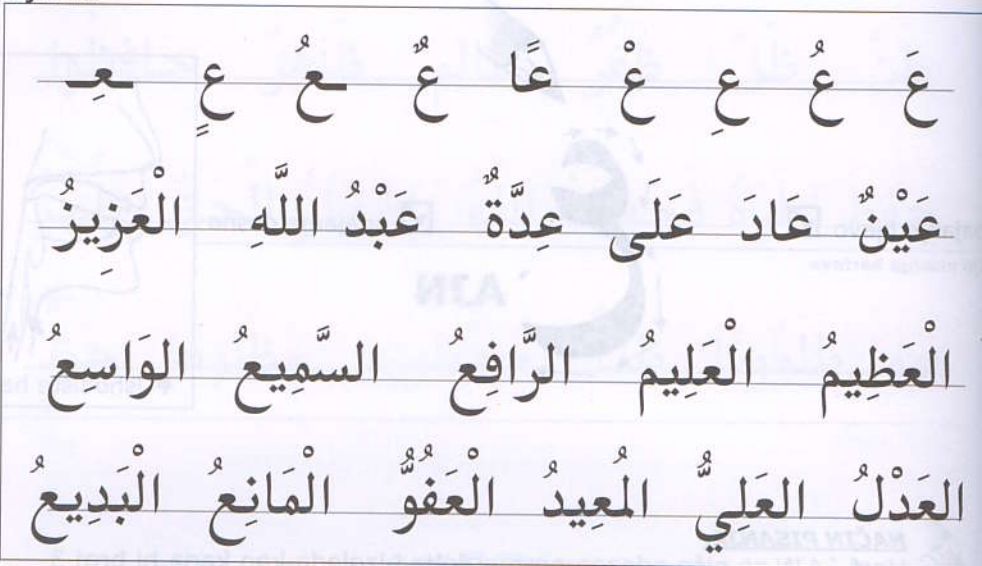 عَ عُ عِ عْ عًا عٌ ـعُ عٍ ـعِـ
عَيْنٌ عَادَ عَلَى عِدَّةٌ عَبْدُ اللَّهِ الْعَزِيزُ
الْعَظِيمُ الْعَلِيمُ الرَّافِعُ السَّمِيعُ الوَاسِعُ
العَدْلُ العَلِيُّ المُعِيدُ الْعَفُوُّ الْمَانِعُ الْبَدِيعُ